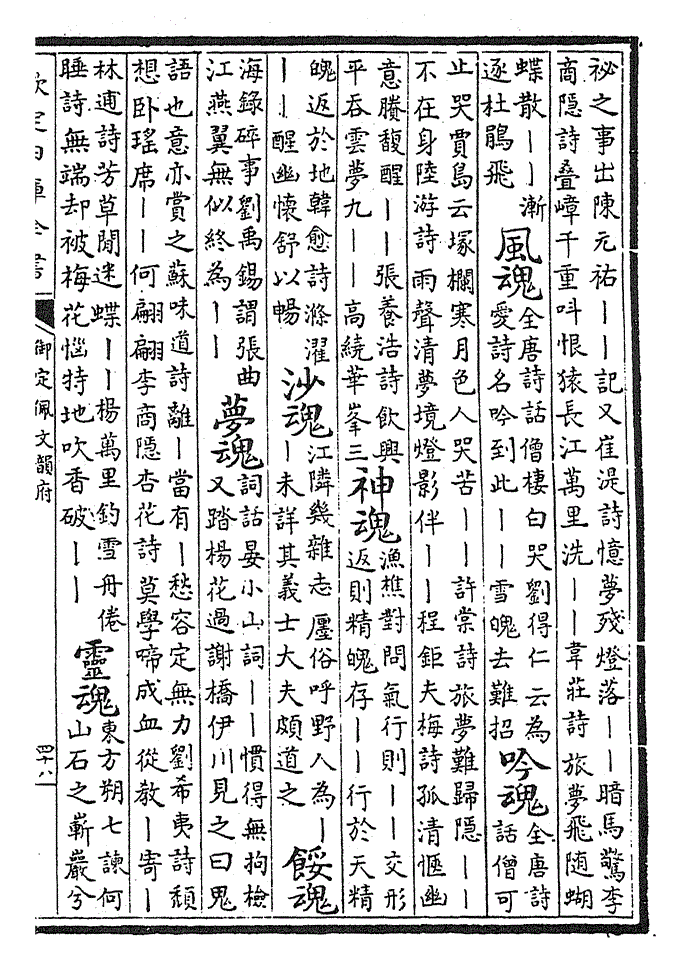 祕之事出陳元祐——記又崔湜詩憶夢殘燈落——暗馬驚李
商隱詩叠嶂千重叫恨猿長江萬里洗——韋莊詩旅夢飛随蝴
蝶散——漸
逐杜鵑飛
風魂
全唐詩話僧棲白哭劉得仁云為
愛詩名吟到此——雪魄去難招
吟魂
全唐詩
話僧可
止哭賈島云塚欄寒月色人哭苦——許棠詩旅夢難歸隱——
不在身陸游詩雨聲清夢境燈影伴——程鉅夫梅詩孤清愜幽
意賸馥醒——張養浩詩飲興
平吞雲夢九——高繞華峯三
神魂
漁樵對問氣行則——交形
返則精魄存——行於天精
魄返於地韓愈詩滌濯
——醒幽懷舒以暢
沙魂
江隣幾雜志㕓俗呼野人為—
—未詳其義士大夫頗道之
餒魂
海錄碎事劉禹錫謂張曲
江燕翼無似終為——
夢魂
詞話晏小山詞——慣得無拘檢
又踏楊花過謝橋伊川見之曰鬼
語也意亦賞之蘇味道詩離—當有—愁容定無力劉希夷詩頽
想卧瑤席——何翩翩李商隱杏花詩莫學啼成血從教—寄—
林逋詩芳草閒迷蝶——楊萬里釣雪舟倦
睡詩無端却被梅花惱特地吹香破——
靈魂
東方朔七諫何
山石之嶄巖兮
欽定四庫全書
御定佩文韻府
四十八